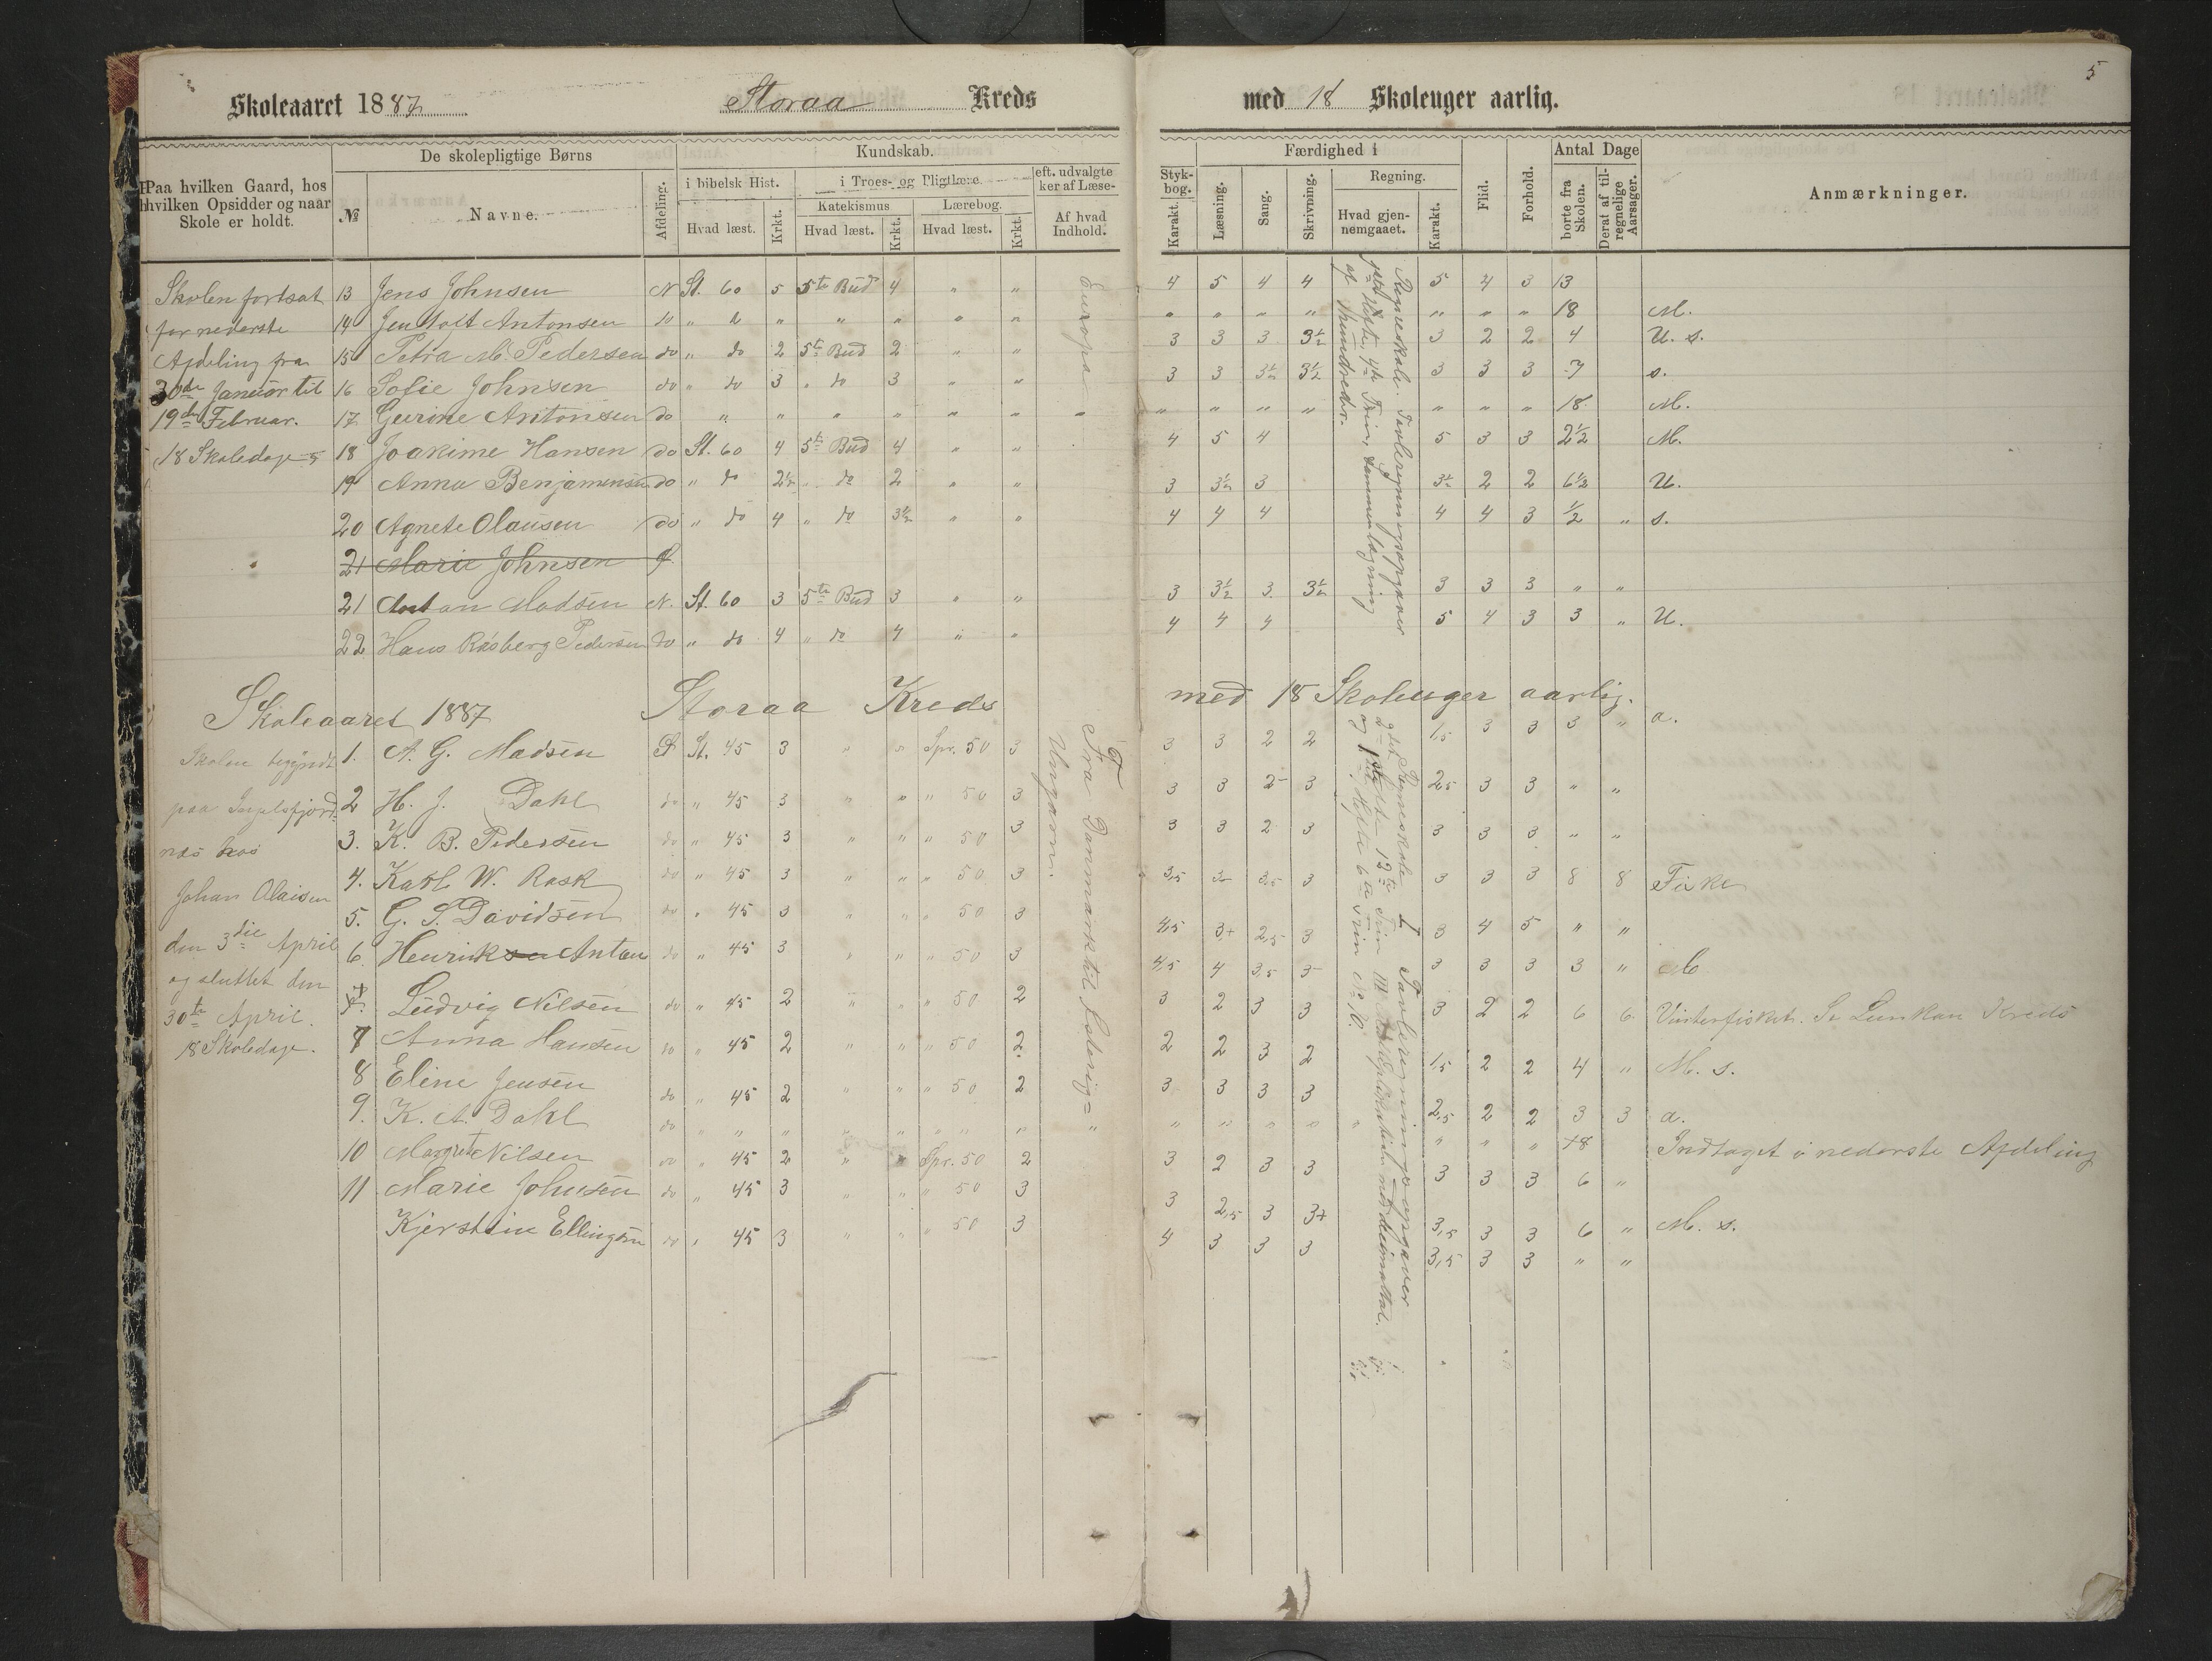 5
Skoleaaret 1887. Storaa Kreds med 18 Skoleuger aarlig.
Paa hvilken Gaard, hos hvilken Opsidder og naar Skole er holdt.
De skolepligtige Børns
№ Navne. Afdeling.
Kundskab.
i bibelsk Hist. i Troes- og Pligtlære. eft. udvalgte Stykker af Læsebog.
Katekismus Lærebog.
Hvad læst. Krkt. Hvad læst. Krkt. Hvad læst. Krkt. Af hvad Indhold. Karakt.
Færdighed i
Læsning. Sang. Skrivning. Regning.
Hvad gjennemgaaet. Karakt.
Flid. Forhold.
Antal Dage
borte fra Skolen. Deraf af tilregnelige Aarsager.
Anmærkninger.
Skolen fortsat
for nederste
Afdeling fra
30de Januar til
19de Februar.
18 Skoledage
13 Jens Johnsen N St. 60 5 5te Bud 4 " " 4 5 4 4 5 4 3 13
14 Jentoft Antonsen do " " " " " " " " " " " " " " 18 M.
15 Petra M. Pedersen do " do 2 5te Bud 2 " " 3 3 3 3½ 3 2 2 4 U. s.
16 Sofie Johnsen do " do 3 " do 3 " " 3 3 3½ 3½ 3 3 3 7 s.
17 Geerine Antonsen do " " " " " " " " " " " " " 18 M.
18 Joakime Hansen do St. 60 4 5te Bud 4 " " 4 5 4 5 3 3 2½ M.
19 Anna Benjaminsen do " do 2½ " do 2 " " 3 3½ 3 3½ 2 2 6½ U.
20 Agnete Olausen do " do 4 " do 3½ " " 4 4 4 4 4 3 ½ " s.
21 Marie Johnsen
21 Anton Madsen N. St. 60 3 5te Bud 3 " " 3 3½ 3 3½ 3 3 3 " "
22 Hans Råsberg Pedersen do " do 4 " do 4 " " 4 4 4 5 4 3 3 " U.
Europa
Regneskole. Tavleregningsopgaver
1ste Hefte, 4de Trin, Sammenlægning
af Hundreder.
Skoleaaret 1887 Storaa Kreds med 18 Skoleuger aarlig.
Skolen begyndt
paa Ingelsfjord
næs hos
Johan Olaisen
den 3die April
og sluttet den
30te April.
18 Skoledage.
1. A. G. Madsen St. 45 3 " " Spr. 50 3 3 3 2 2 1,5 3 3 3 " a.
2 H. J. Dahl do " 45 3 " " " 50 3 3 3 2- 3 2,5 3 3 " "
3. K. B. Pedersen do " 45 3 " " " 50 3 3 3 2 3 3 3 3 " "
4. Karl W. Rask do " 45 3 " " " 50 3 3,5 3- 3,5 3 3 3 3 8 8 Fiske
5. G. S. Davidsen do " 45 3 " " " 50 3 4,5 3+ 2,5 3 3 4 5 " "
6. Henrik Anton do " 45 3 " " " 50 3 4,5 4 3,5 3- 3 3 3 3 " M
Ludvig Nilsen do " 45 2 " " " 50 2 3 2 3 3 3 2 2 6 6 Vinterfisket. Se Lunkan Kreds
7 Anna Hansen do " 45 2 " " " 50 2 2 2 3 2 1,5 2 2 4 " M. s.
8 Eline Jensen do " 45 2 " " " 50 2 3 3 3 3 2,5 2 2 3 3 a.
9. K. A. Dahl do " " " " " " " " " " " " " " " +8 Indtaget i nederste Afdeling
10 Magret Nilsen do " 45 2 " " Spr. 50 2 3 2 3 3 3 3 3 6 "
11 Marie Johnsen do " 45 3 " " " 50 3 3 2,5 3 3+ 3,5 3 3 6 " M. s.
Kjerstine Ellingsen do " 45 3 " " " 50 3 4 3 3 3 3,5 3 3 " "
Fra Danmark til
Ungarn.
Regneskole Tavleregningsopgaver
12te Trin
og 1ste Hefte 6te Trin № 10.